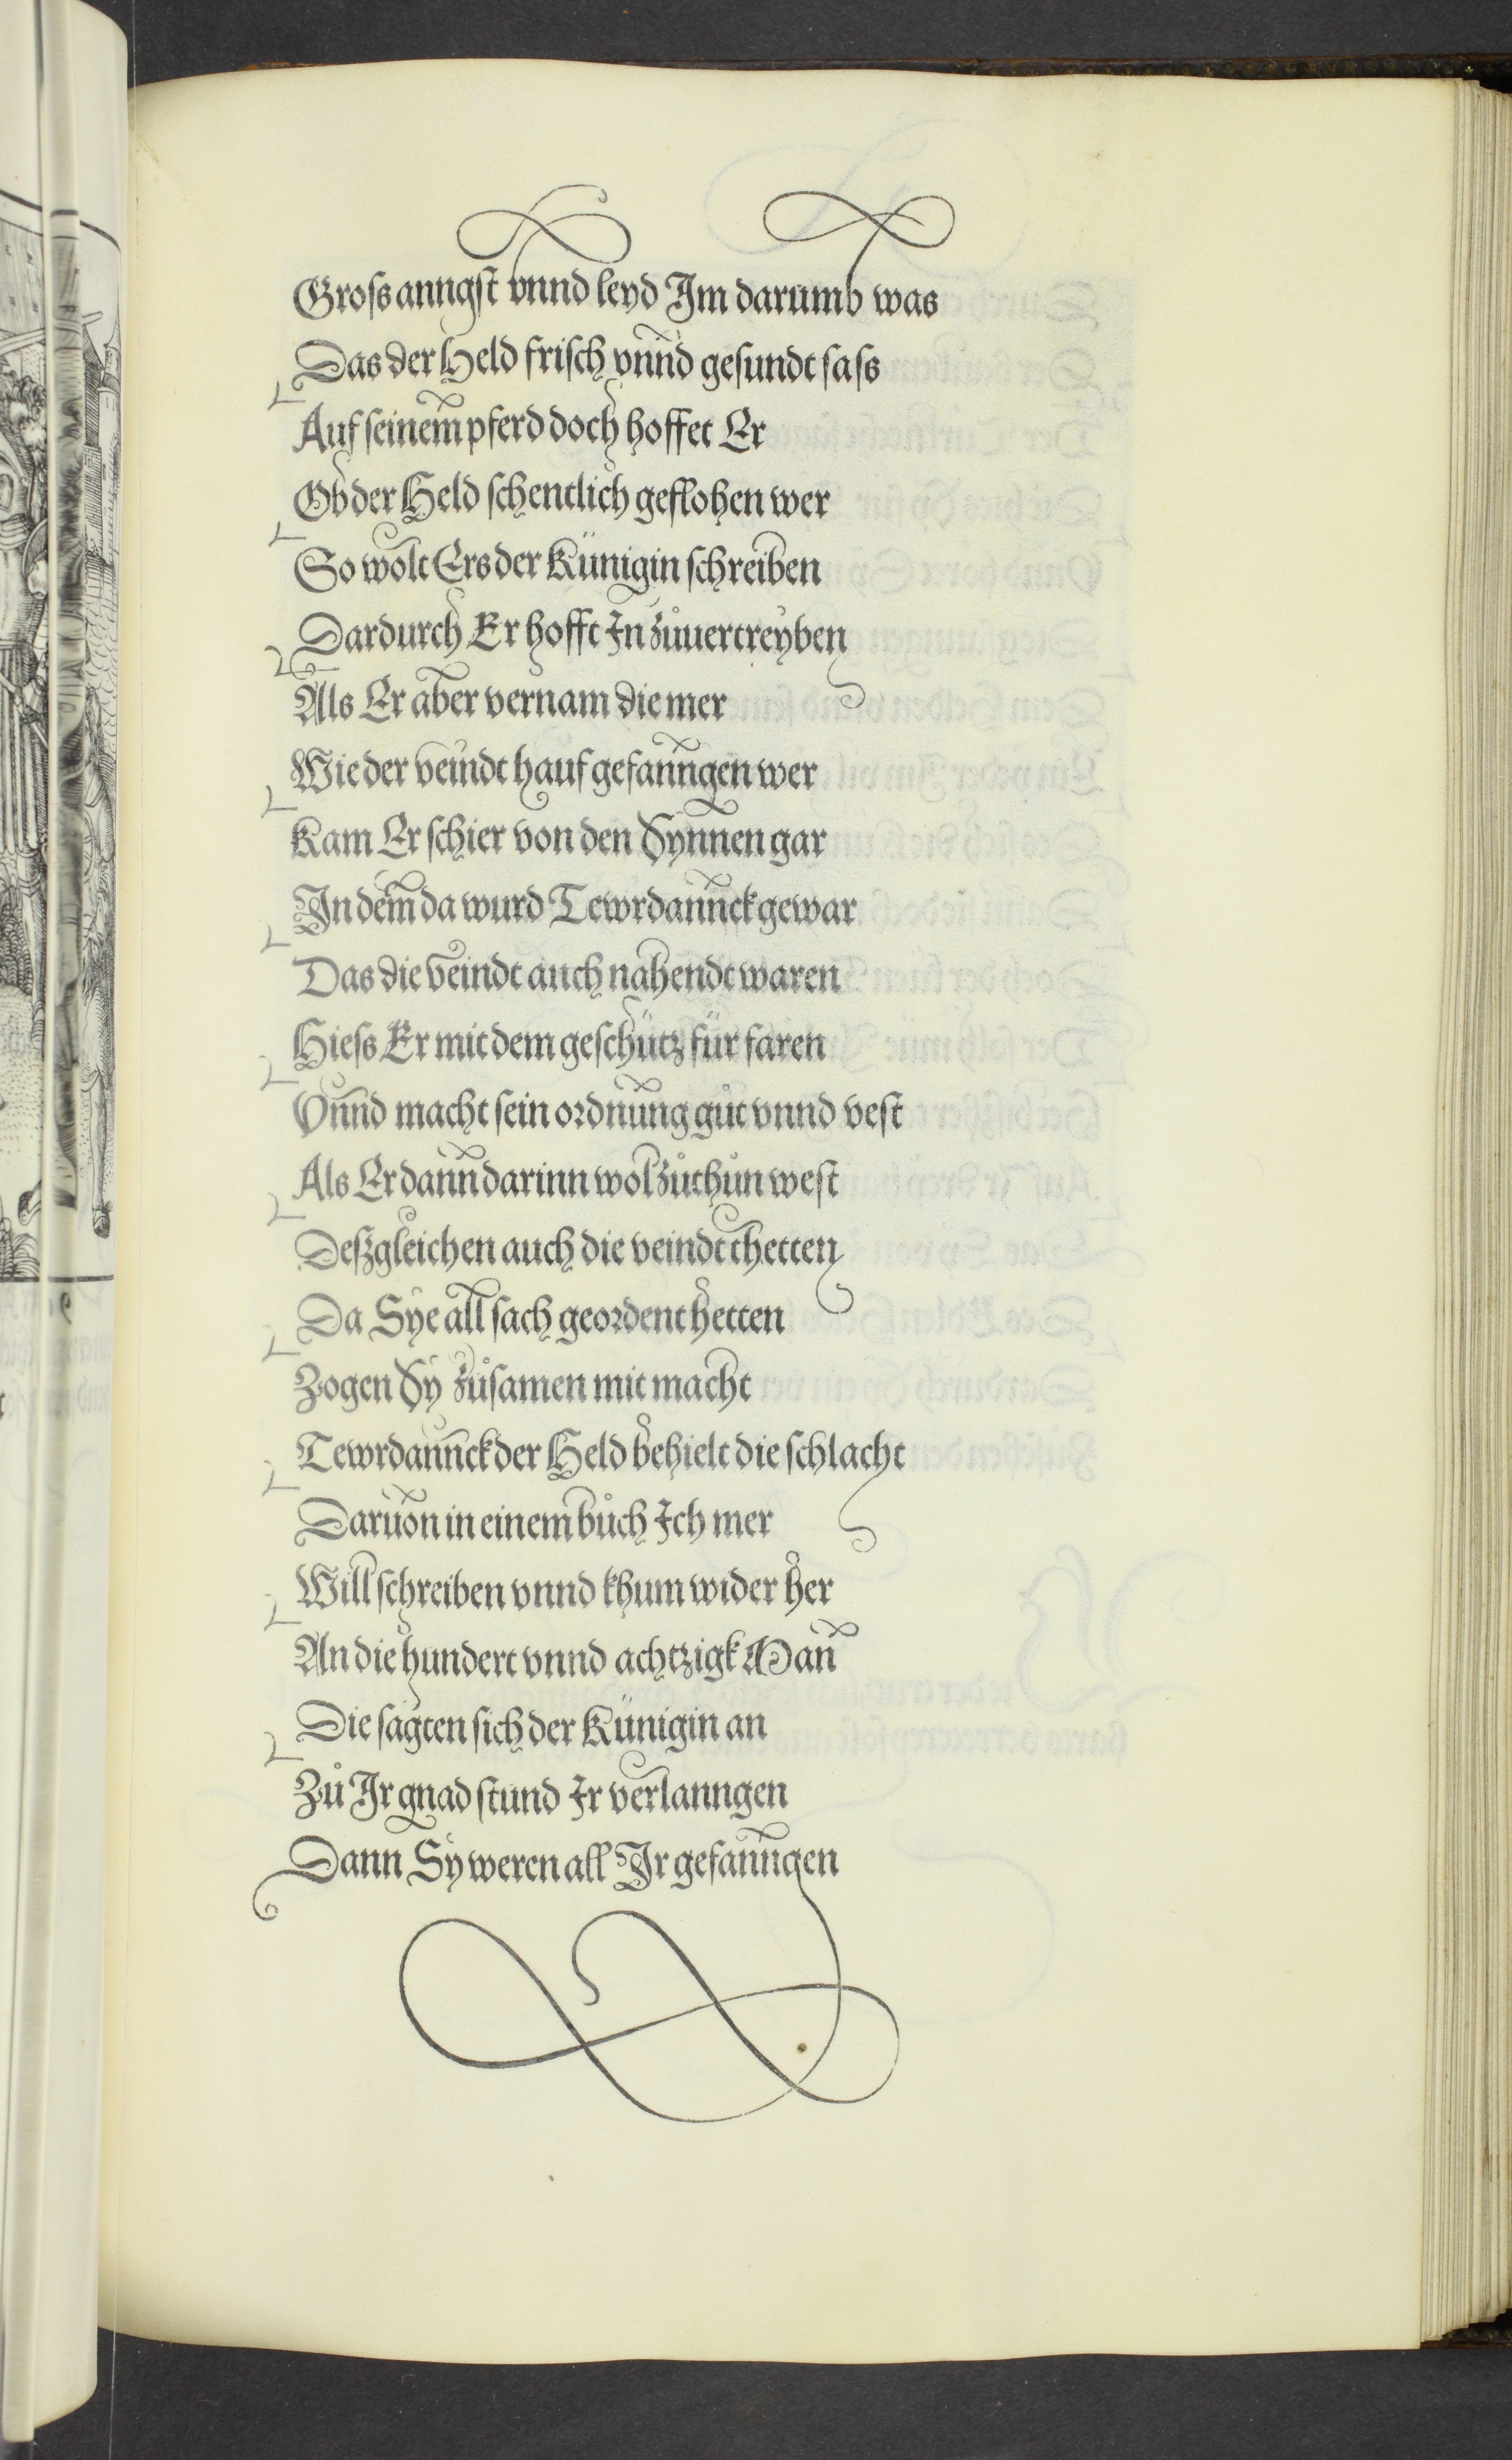 Groſs anngſt vnnd leyd Im darumb was
Das der Held friſch vnnd geſundt ſaſs
Auf ſeinem pferd doch hoffet Er
Ob der Held ſchentlich geflohen wer
So wolt Ers der Künigin ſchreiben
Dardurch Er hofft In zůuertreyben
Als Er aber vernam die mer
Wie der veindt hauf gefanngen wer
Kam Er ſchier von den Synnen gar
In dem da wurd Tewrdannck gewar
Das die veindt auch nahendt waren
Hieſs Er mit dem geſchütz für faren
Vnnd macht ſein ordnung gůt vnnd veſt
Als Er dann darinn wol zůthůn weſt
Deſzgleichen auch die veindt thetten
Da Sye all ſach geordent hetten
Zogen Sy zůſamen mit macht
Tewrdannck der Held behielt die ſchlacht
Daruon in einem bůch Ich mer
Will ſchreiben vnnd khum wider her
An die hundert vnnd achtzigk Man
Die ſagten ſich der Künigin an
Zů Ir gnad ſtund Ir verlanngen
Dann Sy weren all Ir gefanngen